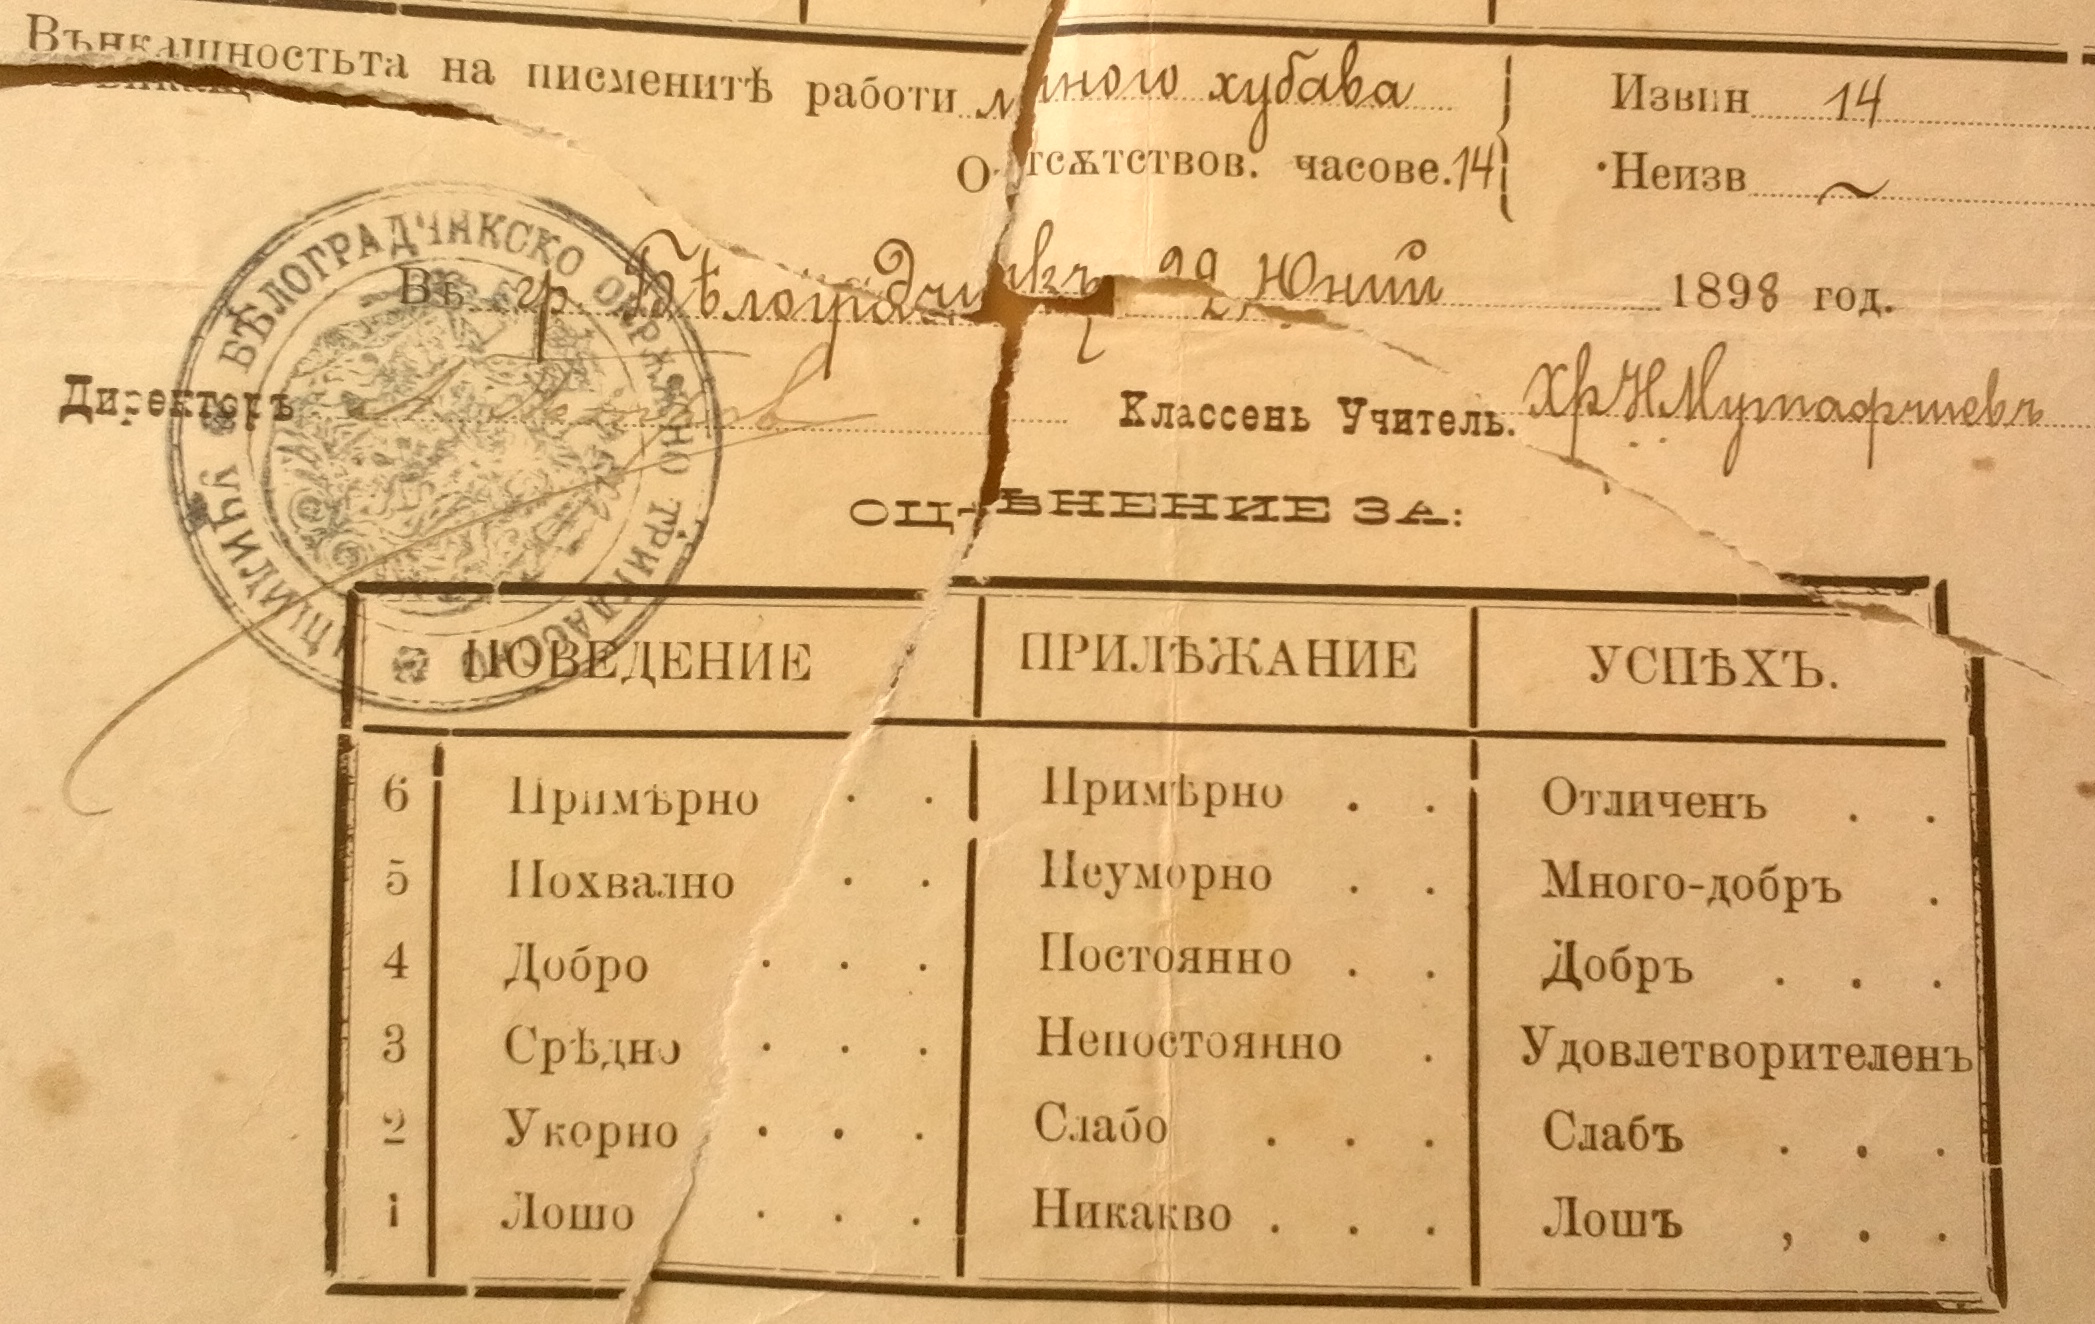 Вънкашностьта на писменитѣ работи много хубава Извин 14
Отсѫтствов. часове. 14 Неизв ~
Въ гр. Бѣлоградчикъ 29 Юний 1898 год.
Директоръ Классенъ Учитель. Хр Н Мутафчиевъ
БѢЛОГРАДЧИКСКО ОКРѪЖНО ТРИКЛАССНО УЧИЛИЩЕ
ОЦѢНЕНИЕ ЗА:
ПОВЕДЕНИЕ ПРИЛѢЖАНИЕ УСПѢХЪ.
6 Примѣрно . . Примѣрно . . Отличенъ . .
5 Похвално . . Неуморно . . Много-добръ .
4 Добро . . . Постоянно . . Добръ . . .
3 Срѣдно . . . Непостоянно . Удовлетворителенъ
2 Укорно . . . Слабо . . . Слабъ . . .
1 Лошо . . . Никакво . . . Лошъ , . .